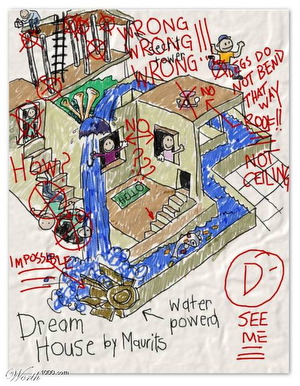 WRONG
WRONG
WRONG!!!
secret
tower
LEGS DO
NOT BEND
THAT WAY
NO
ROOF!!!
NOT
CEILING
NO
HOW?
???
HELLO
IMPOSSIBLE
D-
SEE
ME
water
powerd
Dream
House by Maurits
Worth1000.com